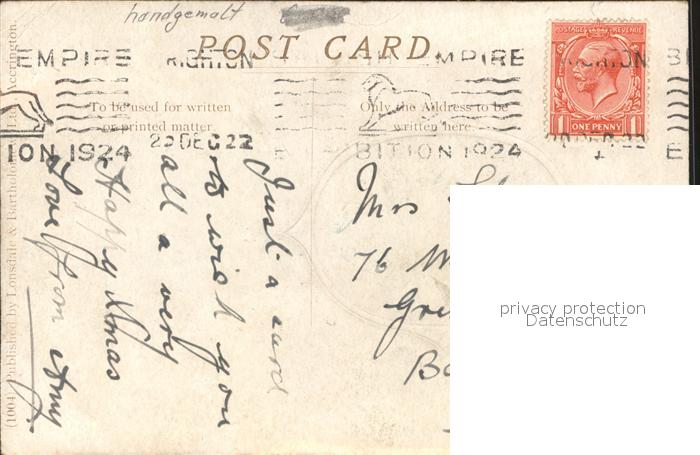 handgemalt
POST CARD
POSTAGE REVENUE
ONE PENNY
EMPIRE
BRITISH EMPIRE
To be used for written
or printed matter
Only the Address to be
written here
22 DEC 22
ION 1924
BITION 1924
Just a card
to wish you
all a very
Happy Xmas
Love from Amy
Mrs
76
(1004) Published by Lonsdale & Bartholo Ltd. Accrington.
privacy protection
Datenschutz